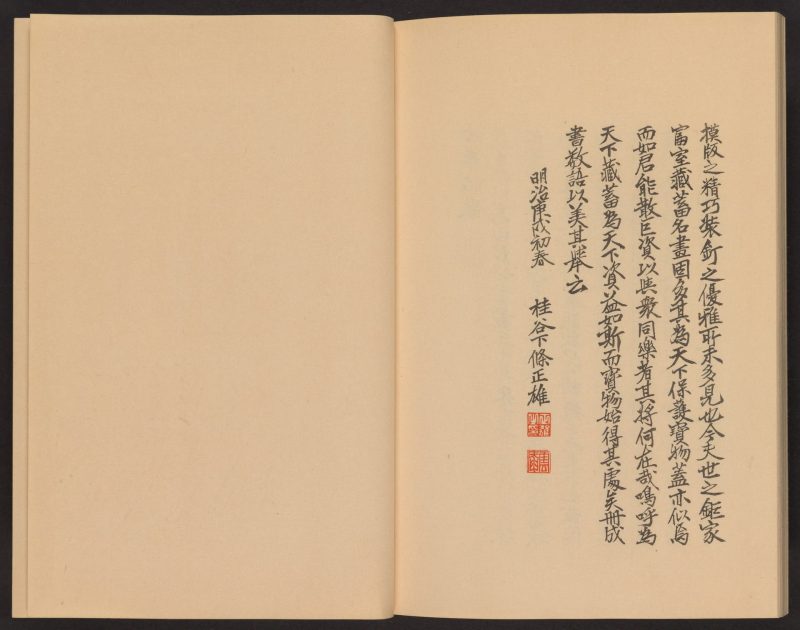 摸版之精巧裝釘之優雅所未多見也今夫世之鉅家
富室藏蓄名畫固多其為天下保護寶物蓋亦似焉
而如君能散巨資以與衆同樂者其將何在哉嗚呼為
天下藏蓄為天下資益如斯而寶物始得其處矣册成
書数語以美其舉云
明治庚戌初春
桂谷下條正雄